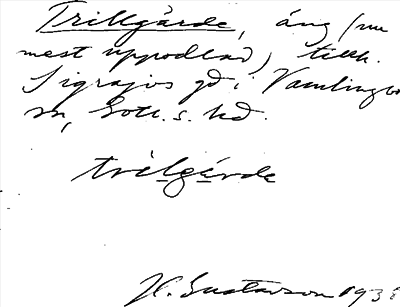 Trillgärde, äng (nu
mest uppodlad), tillh.
Sigrajvs gd i Vamlingbo
sn, Gotl. s. hd.
trilgärde
H. Gustavson 193